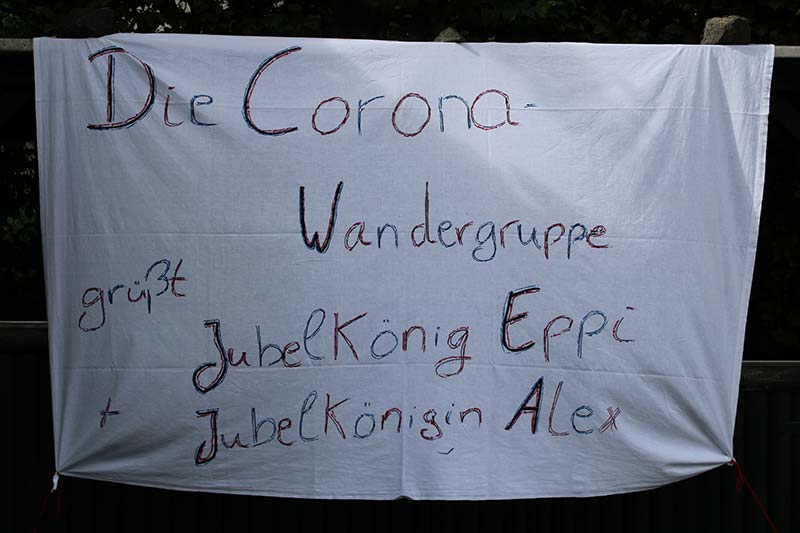 Die Corona-
Wandergruppe
grüßt
JubelKönig Eppi
+ JubelKönigin Alex